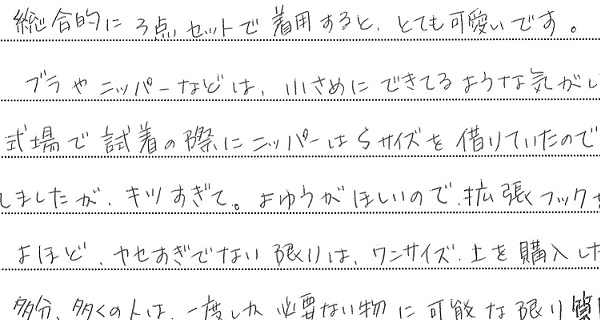 総合的に3点セットで着用すると、とても可愛いです。
ブラやニッパーなどは、小さめにできてるような気がし
式場で試着の際にニッパーはSサイズを借りていたので
しましたが、キツすぎて。よゆうがほしいので、拡張フック
よほど、ヤセすぎでない限りは、ワンサイズ上を購入した
多分、多くの人は、一度しか必要ない物に可能な限り